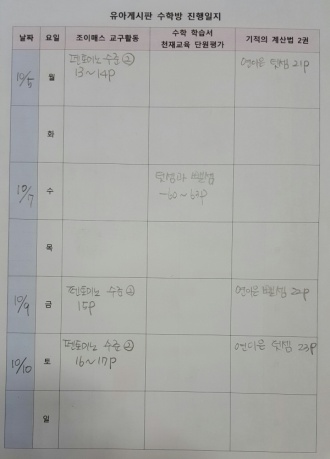 유아게시판 수학방 진행일지
날짜 요일 조이매스 교구활동 수학 학습서 천재교육 단원평가 기적의 계산법 2권
10/5 월 펜토미노 수준 ② 13~14p 연이은 덧셈 21p
화
10/7 수 덧셈과 뺄셈 ~60~62p
목
10/9 금 펜토미노 수준 15p 연이은 뺄셈 22p
10/10 토 펜토미노 수준 ② 16~17p 연이은 덧셈 23p
일